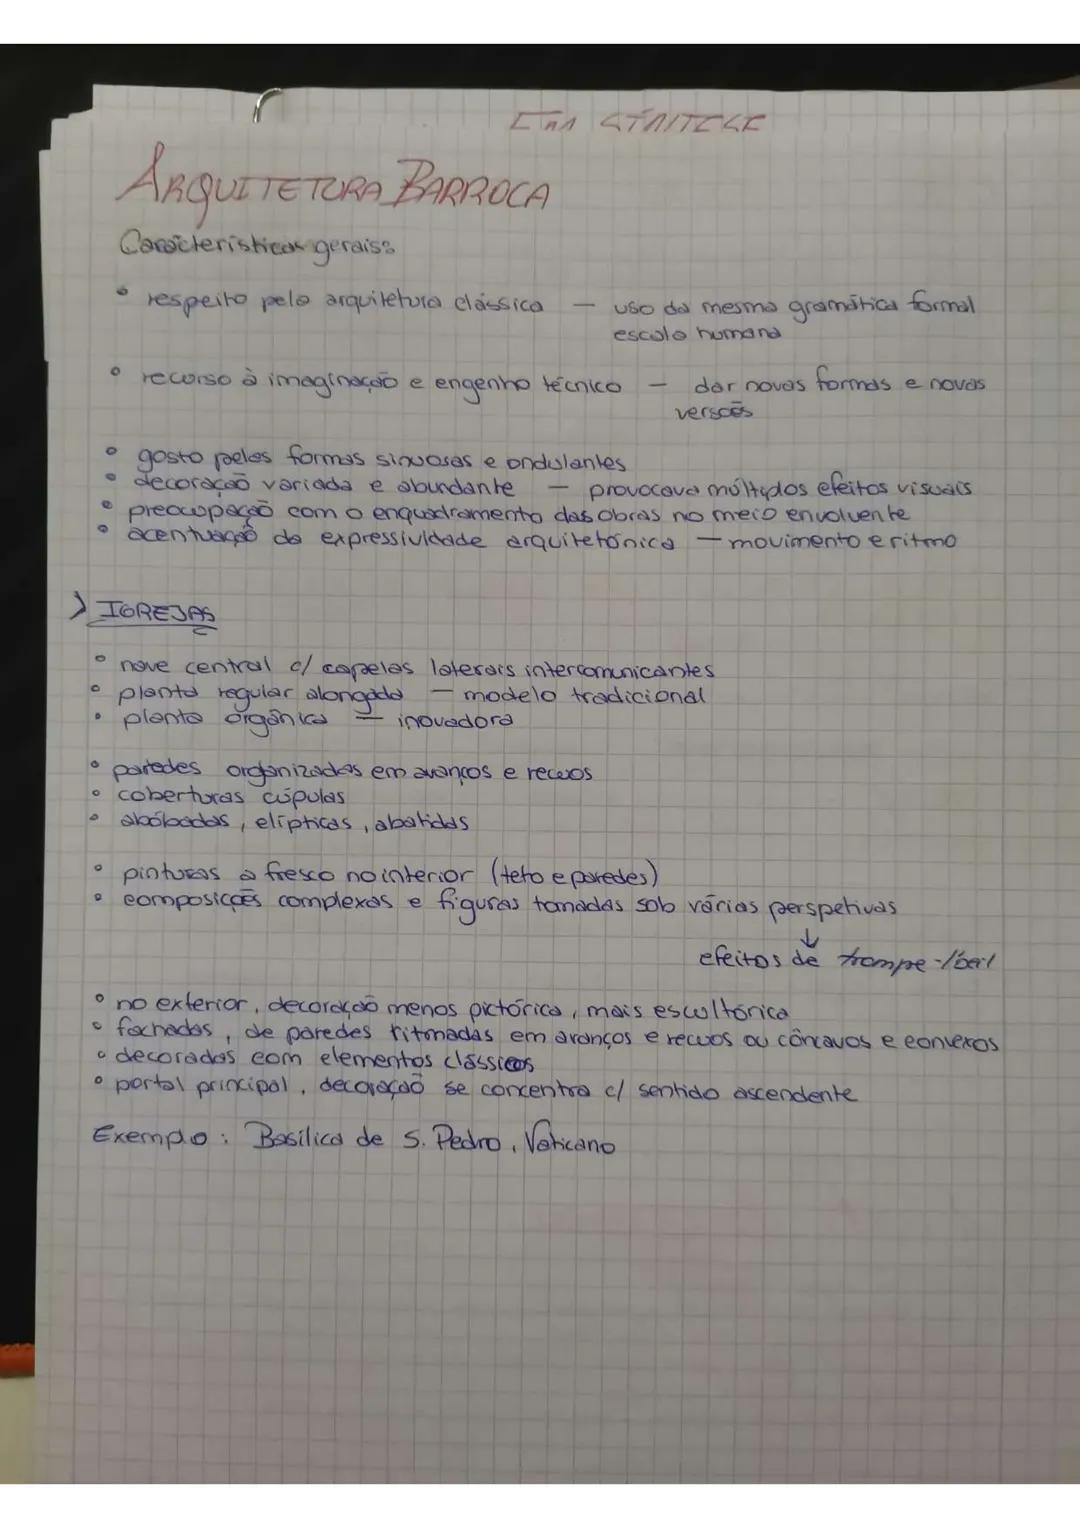 ARQUITETURA BARROCA
Características gerais:
• respeito pela arquitetura clássica — uso da mesma gramática formal
escala humana
• recurso à imaginação e engenho técnico — dar novas formas e novas
versões
• gosto pelas formas sinuosas e ondulantes
• decoração variada e abundante — provocava múltiplos efeitos visuais
• preocupação com o enquadramento das obras no meio envolvente
• acentuação da expressividade arquitetónica — movimento e ritmo
> IGREJAS
• nave central c/ capelas laterais intercomunicantes
• planta regular alongada — modelo tradicional
• planta orgânica — inovadora
• paredes organizadas em avanços e recuos
• coberturas cúpulas
• abóbadas, elípticas, abatidas
• pinturas a fresco no interior (teto e paredes)
• composições complexas e figuras tomadas sob várias perspetivas
↓
efeitos de trompe-l'oeil
• no exterior, decoração menos pictórica, mais escultórica
• fachadas, de paredes ritmadas em avanços e recuos ou côncavos e convexos
• decoradas com elementos clássicos
• portal principal, decoração se concentra c/ sentido ascendente
Exemplo: Basílica de S. Pedro, Vaticano